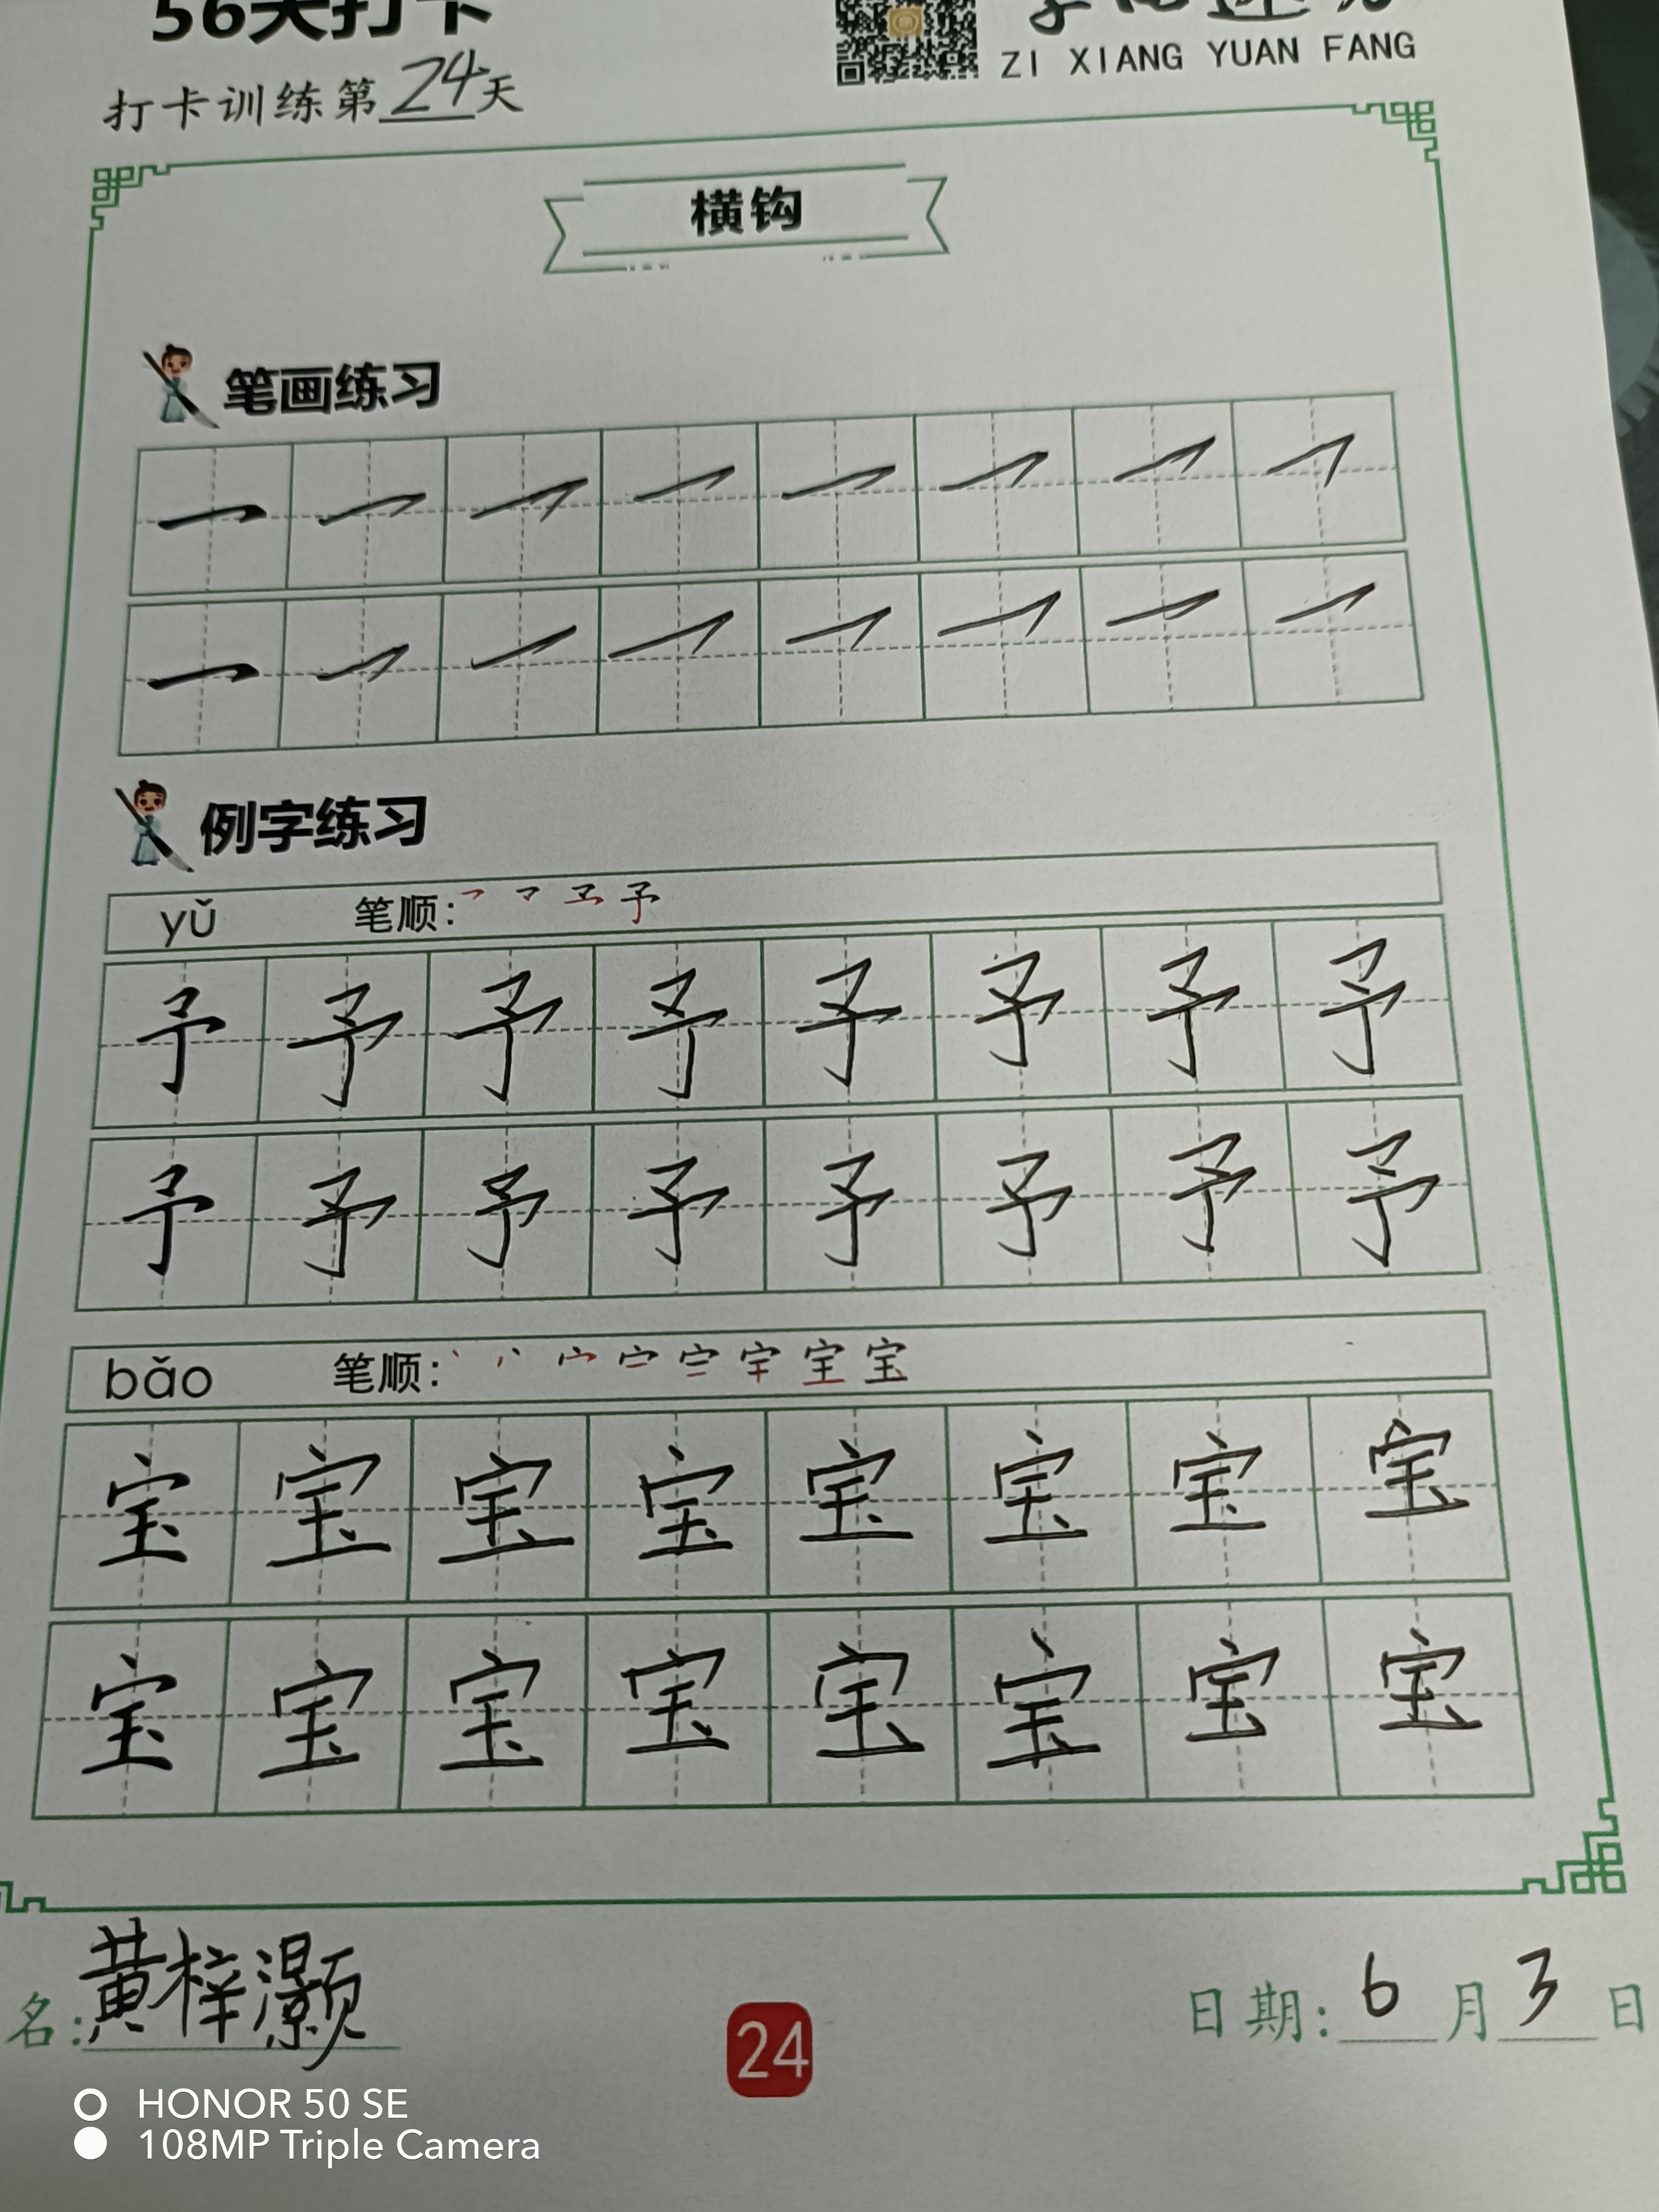 56天打卡
ZI XIANG YUAN FANG
打卡训练第24天
横钩
笔画练习
例字练习
yǔ 笔顺:
予予予予予予予予
予予予予予予予予
bǎo 笔顺:
宝宝宝宝宝宝宝宝
宝宝宝宝宝宝宝宝
名:黄梓灏
24
日期:6月3日
HONOR 50 SE
108MP Triple Camera